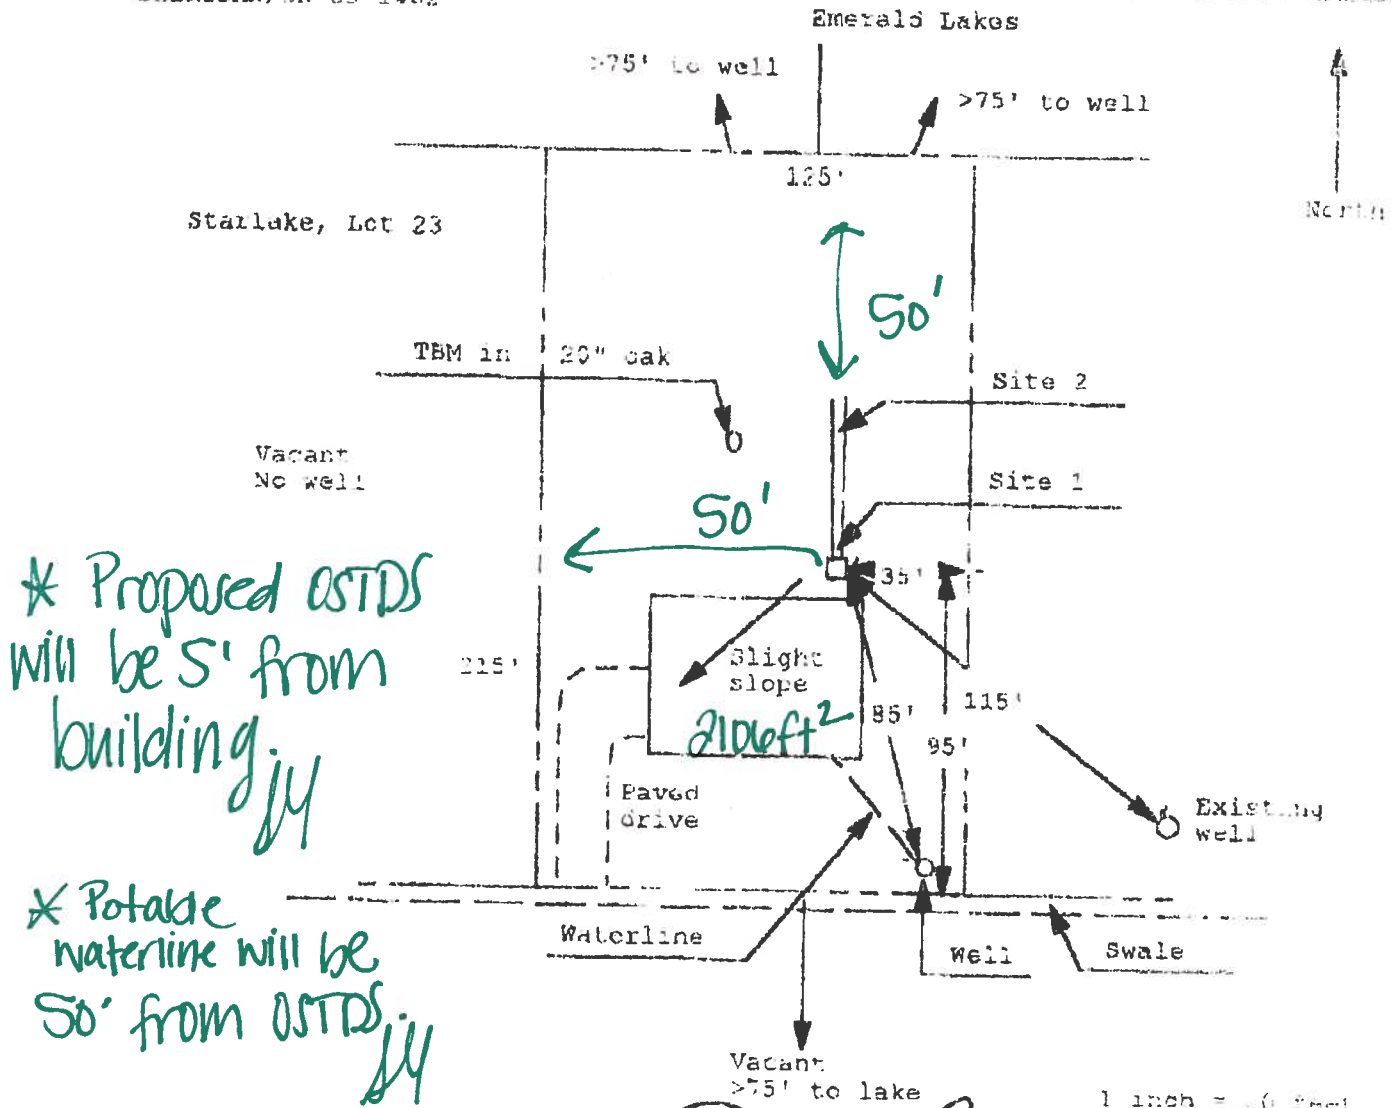 Emerald Lakes
>75' to well
>75' to well
125'
North
Starlake, Lot 23
50'
TBM in 20" oak
Site 2
Vacant
No well
Site 1
50'
35'
* Proposed OSTDS
will be 5' from
building. jy
215'
Slight
slope
2106ft²
85'
115'
95'
Paved
drive
Existing
well
* Potable
waterline will be
50' from OSTDS. jy
Waterline
Well
Swale
Vacant
>75' to lake
1 inch =